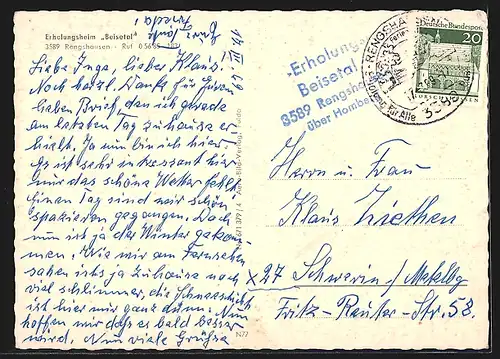 Erholungsheim „Beisetal"
3589 Rengshausen · Ruf 0 56 85
14. III. 69
Eure Tante
Frieda!
Liebe Inge, lieber Klaus!
Noch herzl. Dank für Euren
lieben Brief, den ich gerade
am letzten Tag zuhause er-
hielt. Ja nun bin ich hier
Es ist sehr interessant hier
nur das schöne Wetter fehlt.
Einen Tag sind wir schön
spazieren gegangen. Doch
nun ist ja der Winter gekom-
men. Wie wir am Fernsehen
sahen ists ja zuhause noch
viel schlimmer, die Schneeschicht
ist hier nur ganz dünn. Nun
hoffen wir daß es bald besser
wird. Nun viele Grüße
N77
Erholungs
Beisetal
3589 Rengsha
über Homber
RENGSHAUSEN
Erholung für Alle
Deutsche Bundespost
20
Herrn und Frau
Klaus Ziethen
x 27 Schwerin/Mecklbg
Fritz-Reuter-Str. 58.